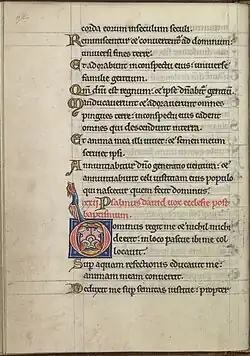 corda eorum in seculum seculi.
Reminiscentur et convertentur ad dominum:
universi fines terre.
Et adorabunt in conspectu eius: universe
familie gentium.
Qm̄ dn̄i est regnum: et ipse dn̄abitur gentiū.
Manducaverunt et adoraverunt omnes
pingues terre: in conspectu eius cadent
omnes qui descendunt in terra.
Et anima mea illi vivet: et semen meum
serviet ipsi.
Annuntiabitur dn̄o generatio ventura: et
annuntiabunt celi iustitiam eius populo
qui nascetur quem fecit dominus.
xxii Psalmus david vox ecclesie post
baptismum.
Dominus regit me et nichil michi
deerit: in loco pascue ibi me col
locavit.
Sup aquam refectionis educavit me:
animam meam convertit.
Deduxit me sup semitas iustitie: propter